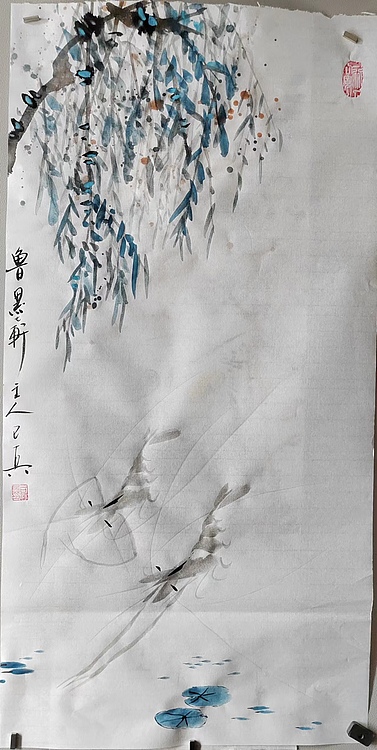 鲁墨轩主人己真